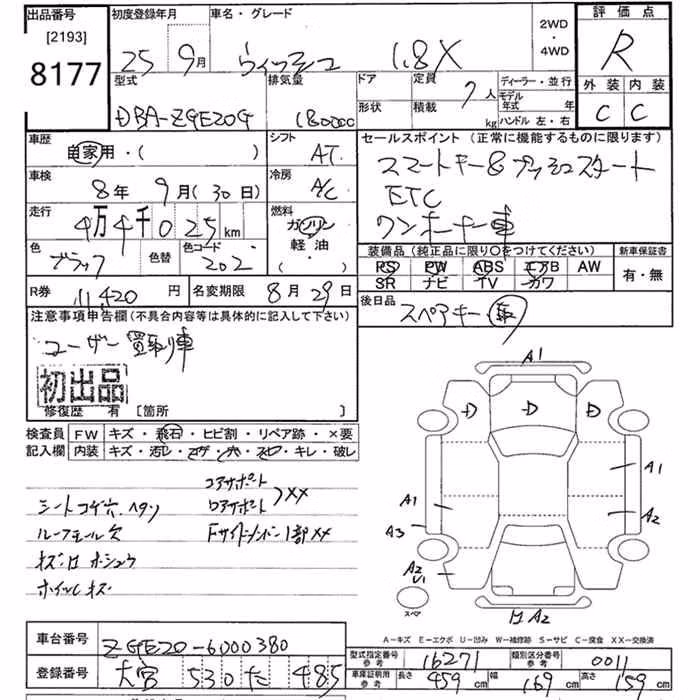 出品番号
[2193]
8177
初度登録年月
25 9月
車名・グレード
ウィッシュ 1.8X
2WD
・
4WD
評価点
R
外装 内装
C C
型式
DBA-ZGE20G
排気量
1800cc
ドア
形状
定員
7人
積載
kg
ディーラー・並行
モデル年式 年
ハンドル 左・右
車歴
自家用・( )
シフト
AT
車検
8年 9月(30日)
冷房
A/C
走行
4万4千025km
燃料
ガソリン
軽油
( ・ )
色
ブラック
色替
色コード
202
R券 11,420 円
名変期限 8月29日
セールスポイント(正常に機能するものに限ります)
スマートキー&プッシュスタート
ETC
ワンオーナー車
装備品(純正品に限り〇をつけてください)
PS PW ABS エアB AW
SR ナビ TV カワ
新車保証書
有・無
後日品
スペアキー
注意事項申告欄(不具合内容等は具体的に記入して下さい)
ユーザー買取り車
初出品
修復歴 有 [箇所 ]
検査員
記入欄
FW キズ・飛石・ヒビ割・リペア跡・×要
内装 キズ・汚レ・コゲ・穴・スレ・キレ・破レ
コアサポート
ロアサポート XX
シートコゲ穴 ヘタリ
Fサイドメンバー1部XX
ルーフモール欠
キズ・凹 ホシュウ
ホイルキズ
A1
D D D
A1
A1
A2
A3
A2
U1
スペア
凹A2
A-キズ E-エクボ U-凹み W-補修跡 S-サビ C-腐食 XX-交換済
車台番号
ZGE20-6000380
登録番号
大宮 530 た 485
型式指定番号
参考
16271
類別区分番号
参考
0011
車庫証明用
参考
長さ 459 cm 幅 169 cm 高さ 159 cm